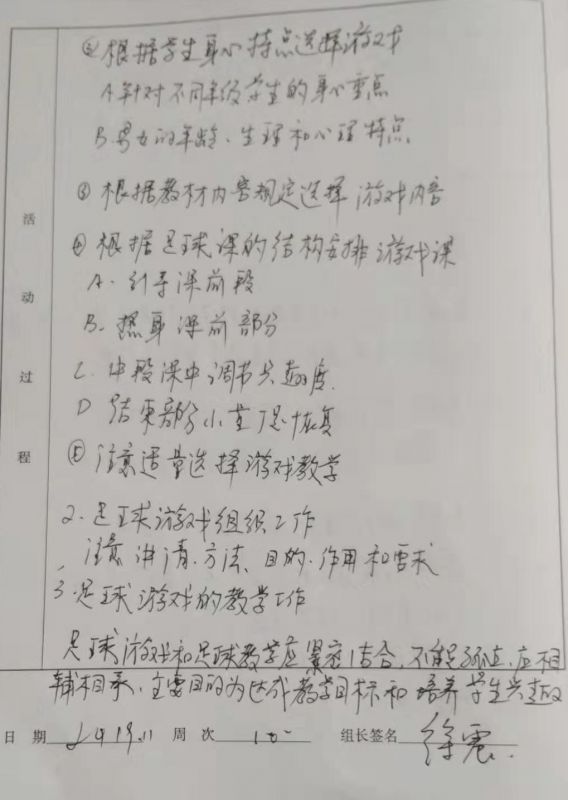 ②根据学生身心特点选择游戏
A.针对不同年级学生的身心重点
B.男女的年龄、生理和心理特点
③根据教材内容规定选择游戏内容
④根据足球课的结构安排游戏课
A.引导课前段
B.热身课前部分
C.中段课中调节兴趣度.
D 结束部分小
恢复
⑤注意适量选择游戏教学
2.足球游戏组织工作
注意讲清.方法、目的.作用和需求
3.足球游戏的教学工作
足球游戏和足球教学应紧密结合,不能孤立,应相
辅相承.主要目的为达成教学目标和培养学生兴趣
活动过程
日 期 2019.11 周 次 组长签名 徐震